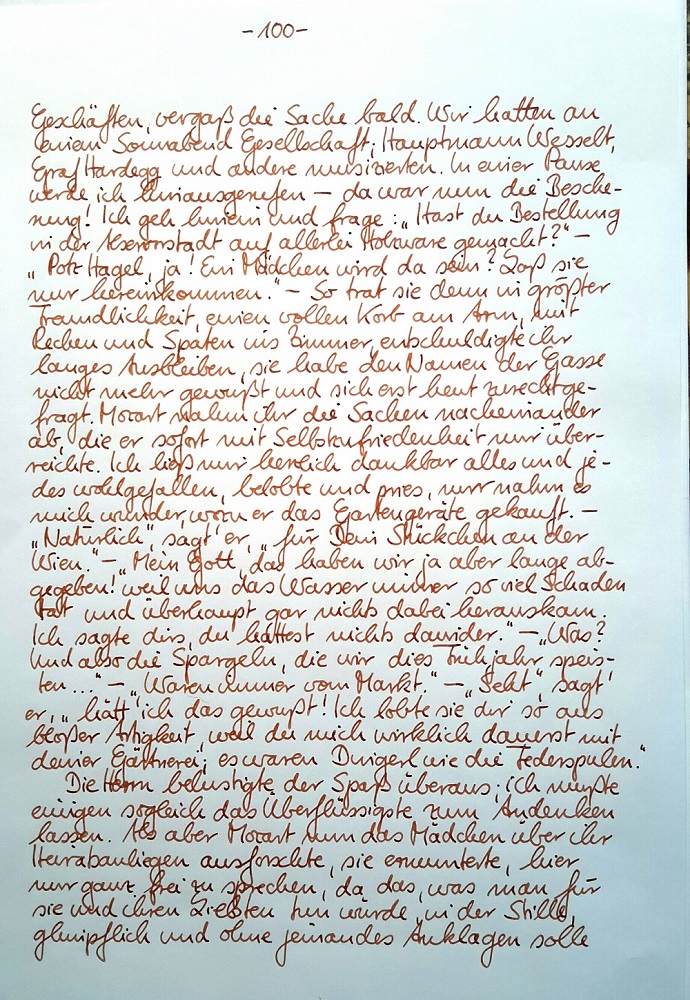 -100-
Geschäften, vergaß die Sache bald. Wir hatten an
einem Sonnabend Gesellschaft; Hauptmann Wesselt,
Graf Hardegg und andere musizierten. In einer Pause
werde ich hinausgerufen – da war nun die Besche-
rung! Ich geh hinein und frage: „Hast du Bestellung
in der Alservorstadt auf allerlei Holzware gemacht?" –
„Potz Hagel, ja! Ein Mädchen wird da sein? Laß sie
nur hereinkommen." – So trat sie denn in größter
Freundlichkeit, einen vollen Korb am Arm, mit
Rechen und Spaten ins Zimmer, entschuldigte ihr
langes Ausbleiben, sie habe den Namen der Gasse
nicht mehr gewußt und sich erst heut zurechtge-
fragt. Mozart nahm ihr die Sachen nacheinander
ab, die er sofort mit Selbstzufriedenheit mir über-
reichte. Ich ließ mir herzlich dankbar alles und je-
des wohlgefallen, belobte und pries, nur nahm es
mich wunder, wozu er das Gartengeräte gekauft. –
„Natürlich", sagt' er, „für Dein Stückchen an der
Wien." – „Mein Gott, das haben wir ja aber lange ab-
gegeben! weil uns das Wasser immer so viel Schaden
tat und überhaupt gar nichts dabei herauskam.
Ich sagte dirs, du hättest nichts dawider." – „Was?
Und also die Spargeln, die wir dies Frühjahr speis-
ten..." – „Waren immer vom Markt." – „Seht", sagt'
er, „hätt' ich das gewußt! Ich lobte sie dir so aus
bloßer Artigkeit, weil du mich wirklich dauerst mit
deiner Gärtnerei; es waren Dingerl wie die Federspulen."
Die Herrn belustigte der Spaß überaus; ich mußte
einigen sogleich das Überflüssigste zum Andenken
lassen. Als aber Mozart nun das Mädchen über ihr
Heiratsanliegen ausforschte, sie ermunterte, hier
nur ganz frei zu sprechen, da das, was man für
sie und ihren Liebsten tun würde, in der Stille,
glimpflich und ohne jemandes Anklagen solle